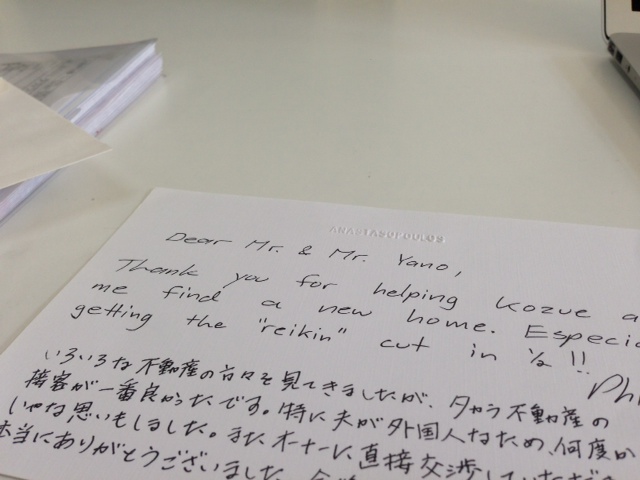 ANASTASOPOULOS
Dear Mr. & Mr. Yano,
Thank you for helping Kozue a
me find a new home. Especia
getting the "reikin" cut in ½!!
Phi
いろいろな不動産の方々を見てきましたが、タカラ不動産の
接客が一番良かったです。特に夫が外国人なため、何度か
いやな思いもしました。またオーナーに直接交渉していただき
本当にありがとうございました。